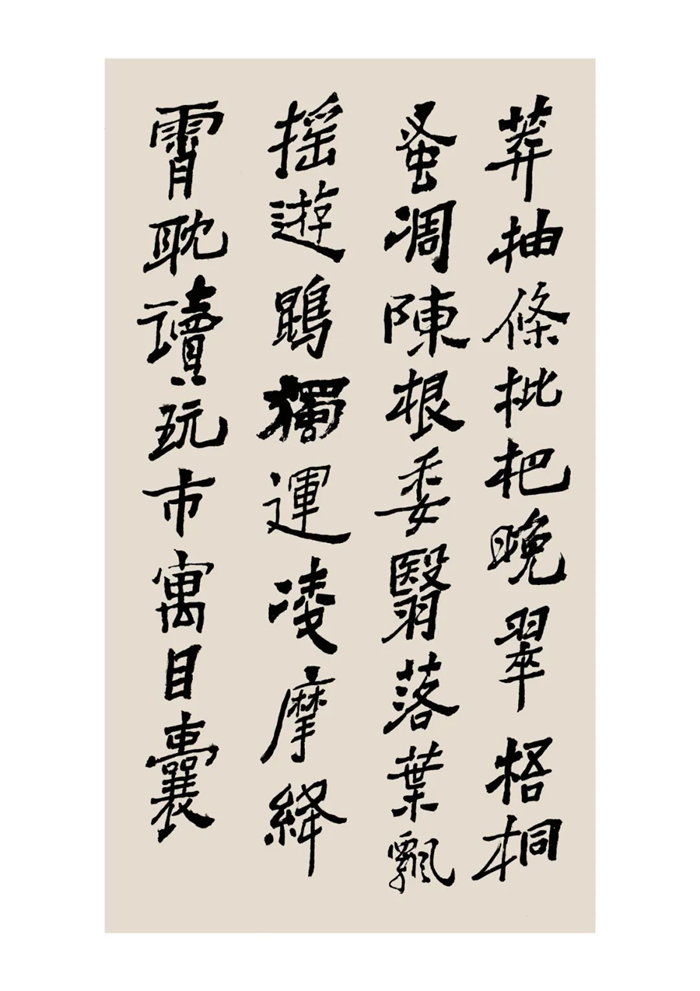 莽抽條枇杷晚翠梧桐
蚤凋陳根委翳落葉飄
搖遊鵾獨運凌摩絳
霄耽讀玩市寓目囊